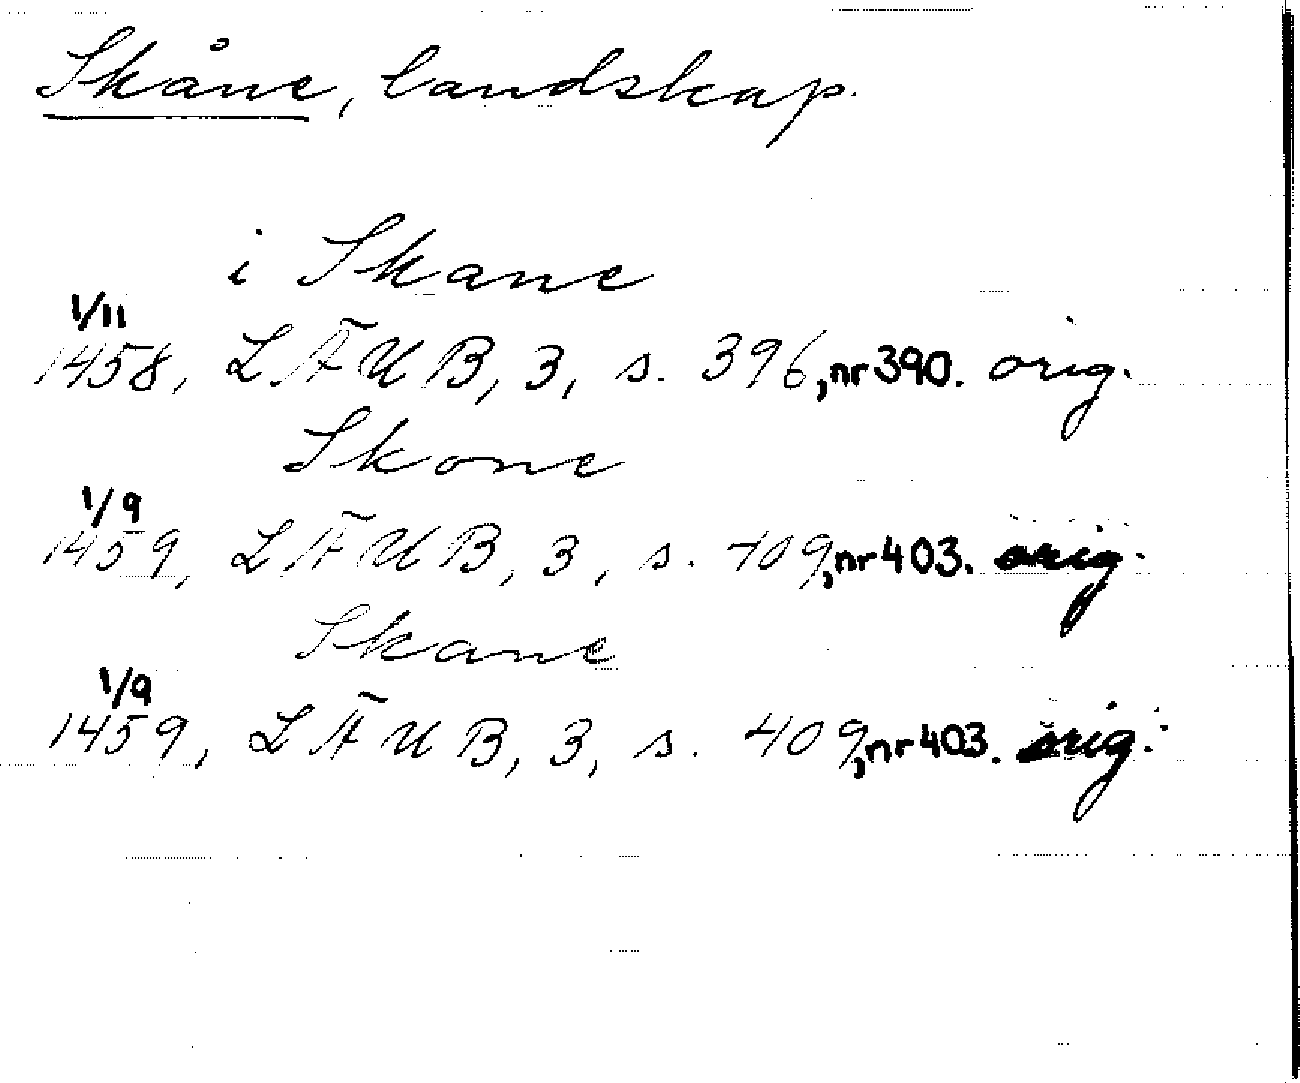 Skåne, landskap.
i Skane
1/11
1458, LÄUB, 3, s. 396, nr 390. orig.
Skone
1/9
1459, LÄUB, 3, s. 409, nr 403. orig.
Skane
1/9
1459, LÄUB, 3, s. 409, nr 403. orig.